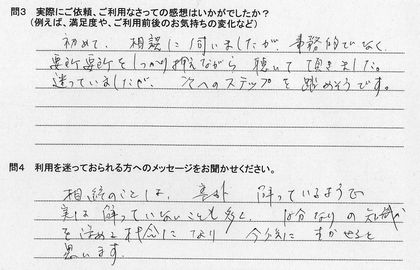 問3 実際にご依頼、ご利用なさっての感想はいかがでしたか?
(例えば、満足度や、ご利用前後のお気持ちの変化など)
初めて、相談に伺いましたが、事務的でなく、
要所要所をしっかり押えながら 聴いて頂きました。
迷っていましたが、次へのステップを踏めそうです。
問4 利用を迷っておられる方へのメッセージをお聞かせください。
相続のことは、意外 解っているようで
実は解っていないことも多く、自分なりの知識
を深める機会になり 今後に すかせると
思います。